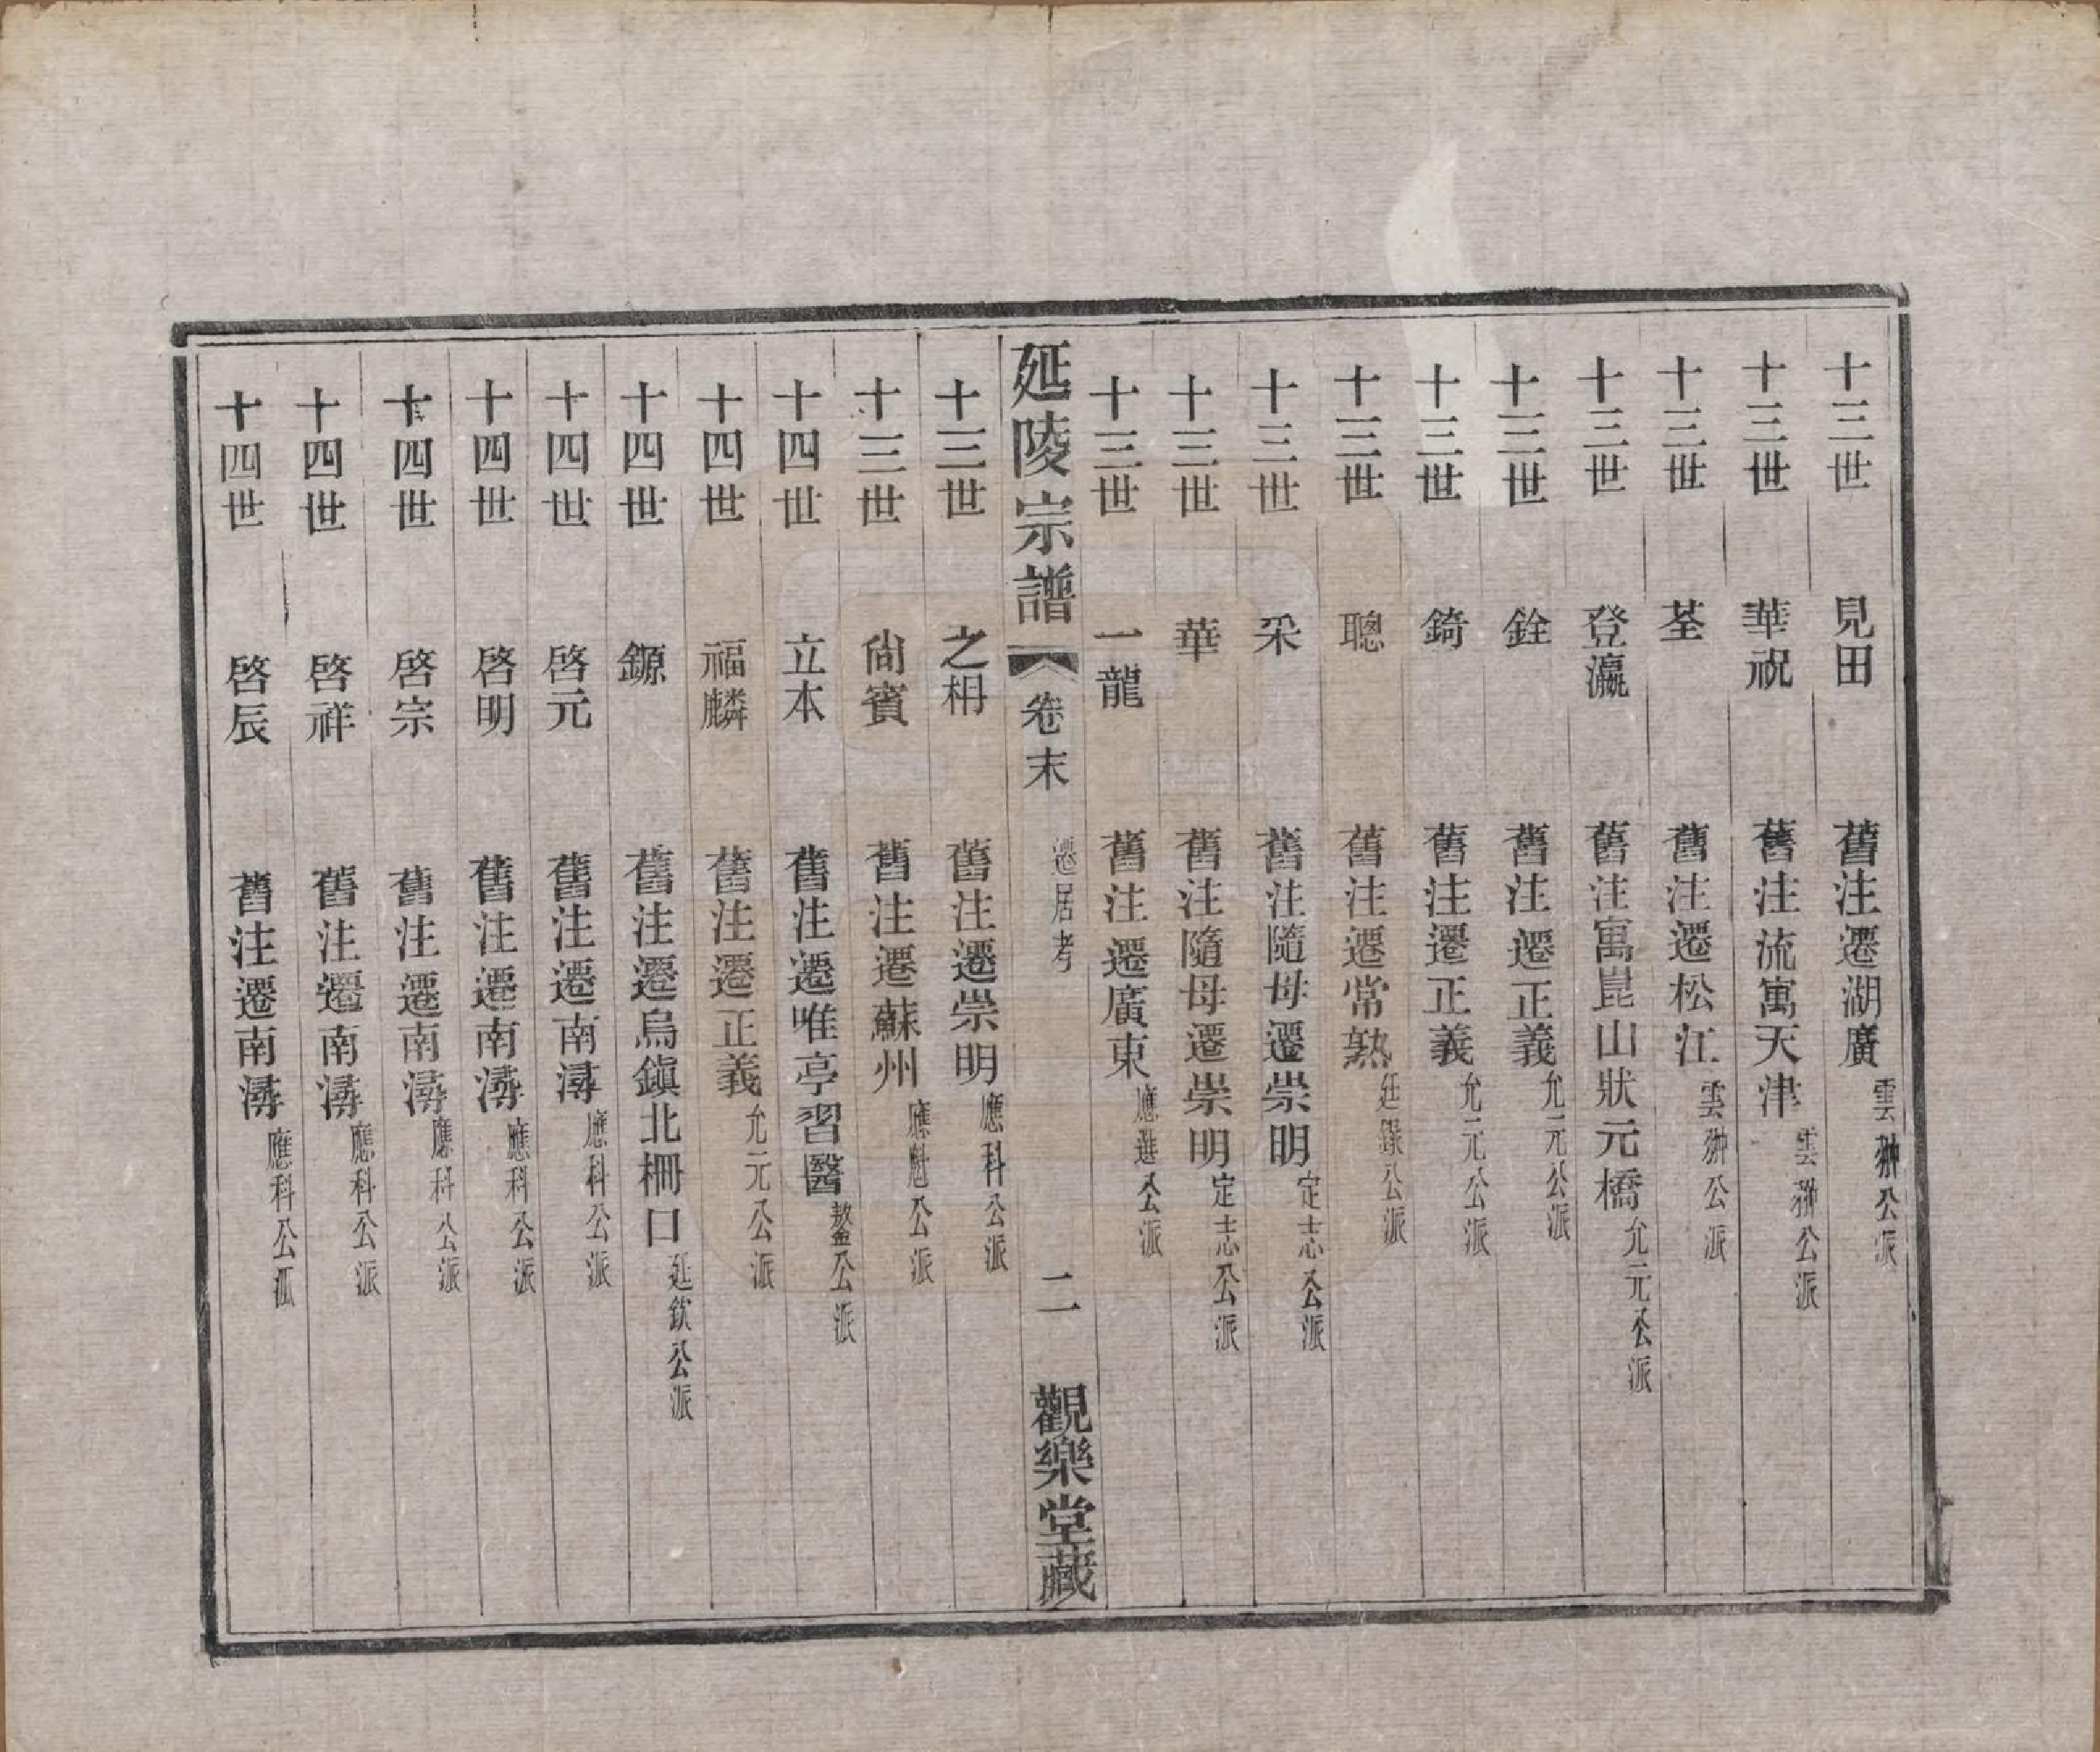 十三世 見田 舊注遷湖廣 雲翀公派
十三世 華祝 舊注流寓天津 雲翀公派
十三世 荃 舊注遷松江 雲翀公派
十三世 登瀛 舊注寓崑山狀元橋 允元公派
十三世 銓 舊注遷正義 允元公派
十三世 錡 舊注遷正義 允元公派
十三世 聰 舊注遷常熟 廷錄公派
十三世 采 舊注隨母遷崇明 定志公派
十三世 華 舊注隨母遷崇明 定志公派
十三世 一龍 舊注遷廣東 應選公派
延陵宗譜 卷末 遷居考 二 觀樂堂藏
十三世 之枏 舊注遷崇明 應科公派
十三世 尙賓 舊注遷蘇州 應魁公派
十四世 立本 舊注遷唯亭習醫 鏊公派
十四世 福麟 舊注遷正義 允元公派
十四世 鎤 舊注遷烏鎭北柵口 廷欽公派
十四世 啓元 舊注遷南潯 應科公派
十四世 啓明 舊注遷南潯 應科公派
十四世 啓宗 舊注遷南潯 應科公派
十四世 啓祥 舊注遷南潯 應科公派
十四世 啓辰 舊注遷南潯 應科公派